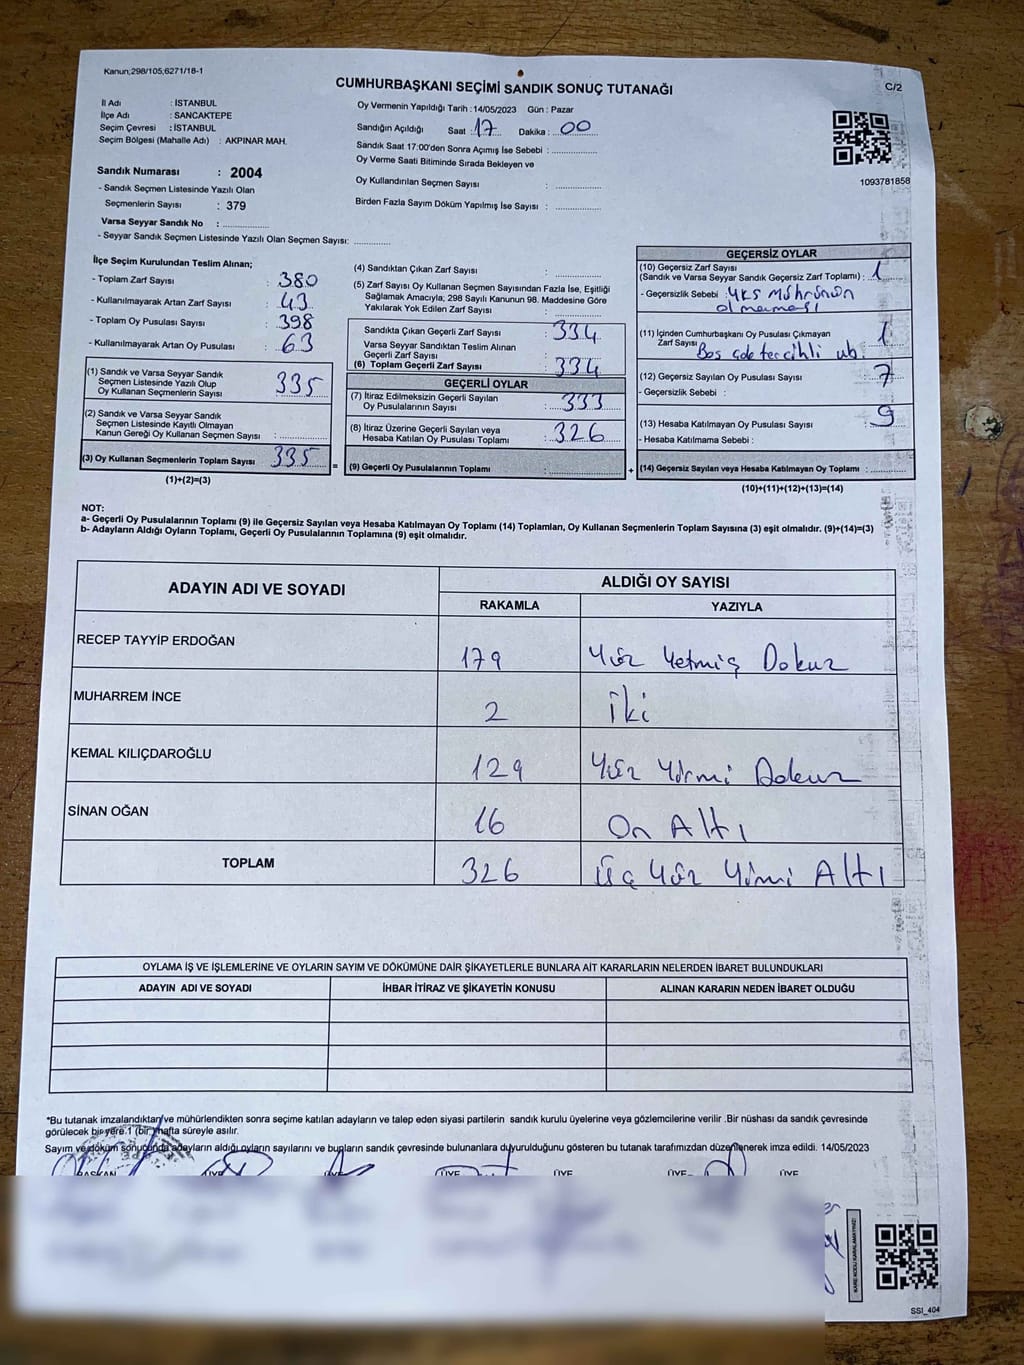 Kanun;298/105,6271/18-1
CUMHURBAŞKANI SEÇİMİ SANDIK SONUÇ TUTANAĞI
C/2
İl Adı : İSTANBUL
İlçe Adı : SANCAKTEPE
Seçim Çevresi : İSTANBUL
Seçim Bölgesi (Mahalle Adı) : AKPINAR MAH.
Sandık Numarası : 2004
- Sandık Seçmen Listesinde Yazılı Olan
Seçmenlerin Sayısı : 379
Varsa Seyyar Sandık No :
- Seyyar Sandık Seçmen Listesinde Yazılı Olan Seçmen Sayısı:
Oy Vermenin Yapıldığı Tarih : 14/05/2023 Gün : Pazar
Sandığın Açıldığı Saat : 17 Dakika : 00
Sandık Saat 17:00'den Sonra Açımış İse Sebebi :
Oy Verme Saati Bitiminde Sırada Bekleyen ve
Oy Kullandırılan Seçmen Sayısı :
Birden Fazla Sayım Döküm Yapılmış İse Sayısı :
1093781858
İlçe Seçim Kurulundan Teslim Alınan;
- Toplam Zarf Sayısı : 380
- Kullanılmayarak Artan Zarf Sayısı : 43
- Toplam Oy Pusulası Sayısı : 398
- Kullanılmayarak Artan Oy Pusulası : 63
(1) Sandık ve Varsa Seyyar Sandık
Seçmen Listesinde Yazılı Olup
Oy Kullanan Seçmenlerin Sayısı : 335
(2) Sandık ve Varsa Seyyar Sandık
Seçmen Listesinde Kayıtlı Olmayan
Kanun Gereği Oy Kullanan Seçmen Sayısı :
(3) Oy Kullanan Seçmenlerin Toplam Sayısı : 335
(1)+(2)=(3)
(4) Sandıktan Çıkan Zarf Sayısı :
(5) Zarf Sayısı Oy Kullanan Seçmen Sayısından Fazla İse, Eşitliği
Sağlamak Amacıyla; 298 Sayılı Kanunun 98. Maddesine Göre
Yakılarak Yok Edilen Zarf Sayısı :
Sandıkta Çıkan Geçerli Zarf Sayısı : 334
Varsa Seyyar Sandıktan Teslim Alınan
Geçerli Zarf Sayısı :
(6) Toplam Geçerli Zarf Sayısı : 334
GEÇERLİ OYLAR
(7) İtiraz Edilmeksizin Geçerli Sayılan
Oy Pusulalarının Sayısı : 333
(8) İtiraz Üzerine Geçerli Sayılan veya
Hesaba Katılan Oy Pusulası Toplamı : 326
= (9) Geçerli Oy Pusulalarının Toplamı :
GEÇERSİZ OYLAR
(10) Geçersiz Zarf Sayısı
(Sandık ve Varsa Seyyar Sandık Geçersiz Zarf Toplamı) : 1
- Geçersizlik Sebebi : YKS Mührünün
olmaması
(11) İçinden Cumhurbaşkanı Oy Pusulası Çıkmayan
Zarf Sayısı : 1
Boş
(12) Geçersiz Sayılan Oy Pusulası Sayısı : 7
- Geçersizlik Sebebi :
(13) Hesaba Katılmayan Oy Pusulası Sayısı : 9
- Hesaba Katılmama Sebebi :
+ (14) Geçersiz Sayılan veya Hesaba Katılmayan Oy Toplamı :
(10)+(11)+(12)+(13)=(14)
NOT:
a- Geçerli Oy Pusulalarının Toplamı (9) ile Geçersiz Sayılan veya Hesaba Katılmayan Oy Toplamı (14) Toplamları, Oy Kullanan Seçmenlerin Toplam Sayısına (3) eşit olmalıdır. (9)+(14)=(3)
b- Adayların Aldığı Oyların Toplamı, Geçerli Oy Pusulalarının Toplamına (9) eşit olmalıdır.
ADAYIN ADI VE SOYADI
ALDIĞI OY SAYISI
RAKAMLA YAZIYLA
RECEP TAYYİP ERDOĞAN 179 Yüz Yetmiş Dokuz
MUHARREM İNCE 2 İki
KEMAL KILIÇDAROĞLU 129 Yüz Yirmi Dokuz
SİNAN OĞAN 16 On Altı
TOPLAM 326 Üç Yüz Yimi Altı
OYLAMA İŞ VE İŞLEMLERİNE VE OYLARIN SAYIM VE DÖKÜMÜNE DAİR ŞİKAYETLERLE BUNLARA AİT KARARLARIN NELERDEN İBARET BULUNDUKLARI
ADAYIN ADI VE SOYADI İHBAR İTİRAZ VE ŞİKAYETİN KONUSU ALINAN KARARIN NEDEN İBARET OLDUĞU
*Bu tutanak imzalandıktan ve mühürlendikten sonra seçime katılan adayların ve talep eden siyasi partilerin sandık kurulu üyelerine veya gözlemcilerine verilir .Bir nüshası da sandık çevresinde
görülecek bir yere 1 (bir) hafta süreyle asılır.
Sayım ve döküm sonucunda adayların aldığı oyların sayılarını ve bunların sandık çevresinde bulunanlara duyurulduğunu gösteren bu tutanak tarafımızdan düzenlenerek imza edildi. 14/05/2023
BAŞKAN ÜYE ÜYE ÜYE ÜYE ÜYE
KARE KODU KARALAMAYINIZ!
SSI_404